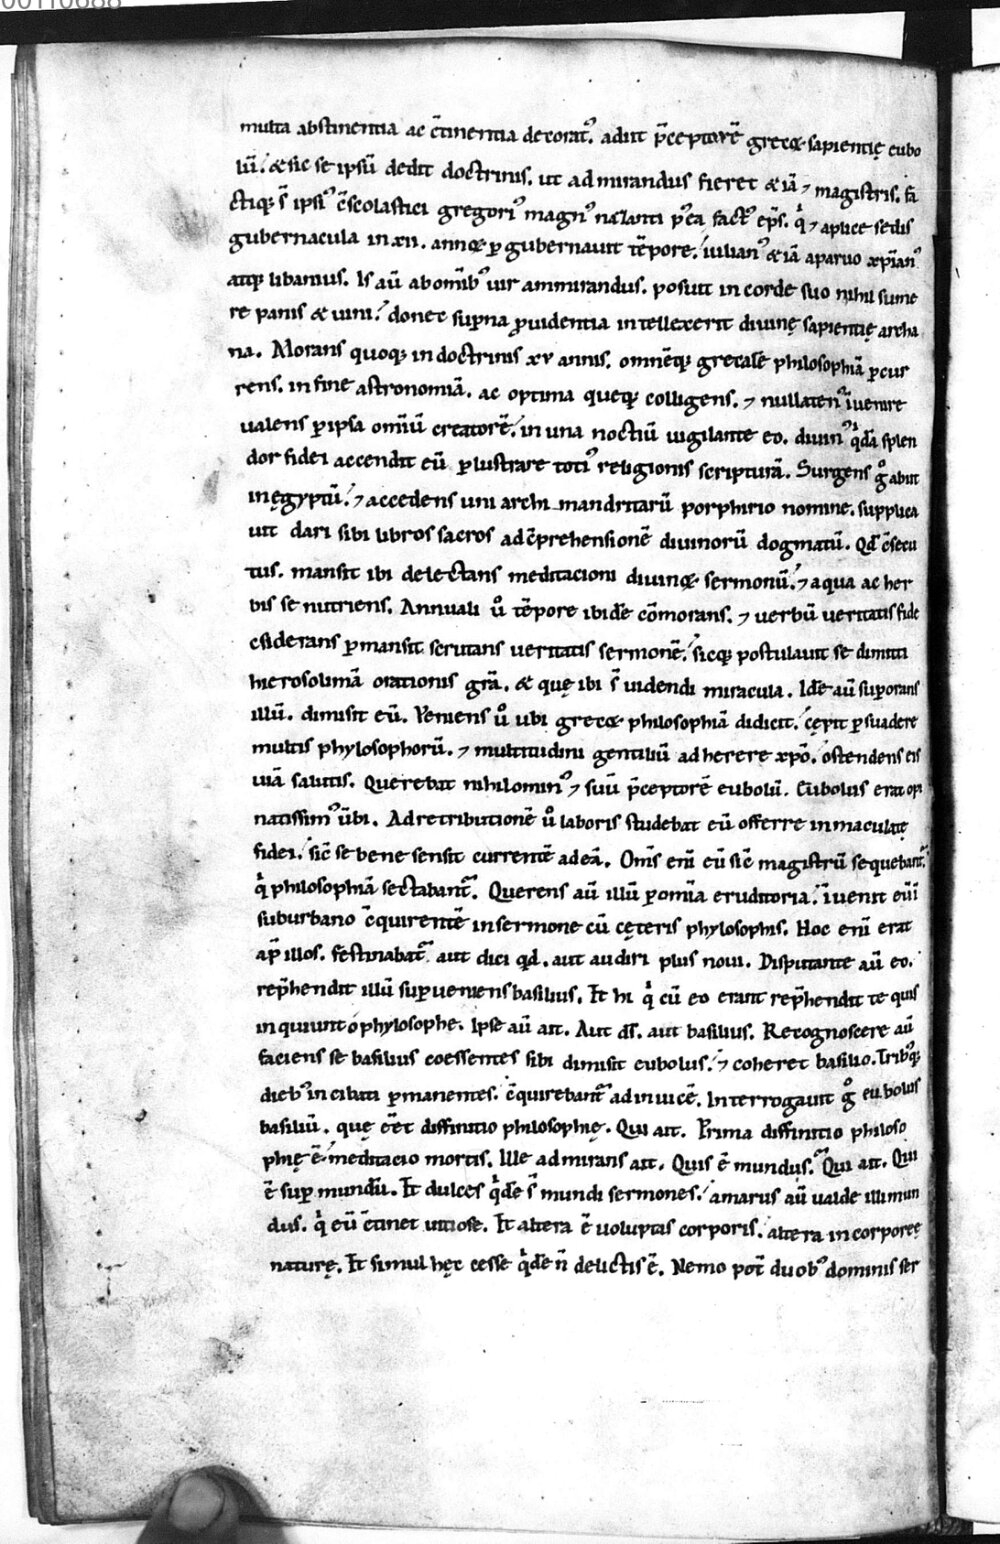 multa abstinentia ac c̄tinentia decorat᷒. adiit p̄ceptorē grecę sapientię eubo
lū. & sic se ipsū dedit doctrinis. ut admirandus fieret & iā ⁊ magistris. fa
ctiq; s̄ ipsi᷒ c̄scolastici gregori᷒ magn᷒ naꝫanti p̾ea fact᷒ ep̄s. q̇ ⁊ aplice sedis
gubernacula in xii. annoꝝ ꝑ gubernauit tēpore. iulian᷒ & iā aparuo xp̄ian᷒
atq; libanius. Is aū ab omīb᷒ uir ammirandus. posuit in corde suo nihil sume
re panis & uini. donec suꝑna ꝓuidentia intellexerit diuinę sapientię archa
na. Morans quoq; in doctrinis xv annis. omnēq; grecalē philosophiā ꝑcur
rens. in fine astronomiā. ac optima queq; colligens. ⁊ nullaten᷒ īuenire
ualens ꝑ ipsa omīū creatorē. in una noctiū uigilante eo. diuin᷒ q̇dā splen
dor fidei accendit eū ꝑlustrare toti᷒ religionis scripturā. Surgens g̊ abiit
in ęgyptū. ⁊ accedens uni archimandritarū porphirio nomine. supplica
uit dari sibi libros sacros ad c̄prehensionē diuinorū dogmatū. Qd̄ c̄secu
tus. mansit ibi delectans meditacioni diuinoꝝ sermonū. ⁊ aqua ac her
bis se nutriens. Annuali ů tēpore ibidē cōmorans. ⁊ uerbū ueritatis fide
csiderans ꝑmansit scrutans ueritatis sermonē. sicq; postulauit se dimitti
hierosolimā orationis grā. & quę ibi s̄ uidendi miracula. Idē aū suꝑorans
illū. dimisit eū. Veniens ů ubi grecoꝝ philosophiā didicit. cępit ꝑsuadere
multis phylosophorū. ⁊ multitudini gentiliū adherere xpō. ostendens eis
uiā salutis. Querebat nihilomin᷒ ⁊ suū p̄ceptorē eubolū. Eubolus erat opi
natissim᷒ ūbi. Ad retributionē ů laboris studebat eū offerre inmaculatę
fidei. sic̄ se bene sensit currentē ad eā. Om̄s eni eū sic̄ magistrū sequebant᷑.
q̇ philosophiā sectabant᷑. Querens aū illū ꝑ omīa eruditoria. īuenit eū ī
suburbano c̄quirentē in sermone cū cęteris phylosophis. Hoc eni erat
ap̄ illos. festinabat᷑ aut dici qd. aut audiri plus noui. Disputante aū eo.
rep̄hendit illū suꝑueniens basilius. Et hi q̇ cū eo erant rep̄hendit te quis
inquiunt o phylosophe. Ipse aū ait. Aut ds̄. aut basilius. Recognoscere aū
faciens se basilius coessentes sibi dimisit eubolus. ⁊ coheret basilio. Trib᷒q;
dieb᷒ incibati ꝑmanentes. c̄quirebant᷑ adinuicē. Interrogauit g̊ eubolus
basiliū. quę eēt diffinitio philosophię. Qui ait. Prima diffinitio philoso
phię ē meditacio mortis. Ille admirans ait. Quis ē mundus. Qui ait. Qui
ē suꝑ mundū. Et dulces q̇dē s̄ mundi sermones. amarus aū ualde ille mun
dus. q̇ eū c̄tinet uitiose. Et altera ē uoluptas corporis. altera incorporeę
naturę. Et simul hęc eesse q̇dē n̄ delictis ē. Nemo pot̄ duob᷒ dominis ser